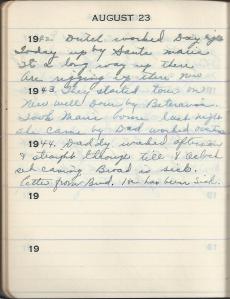 AUGUST 23
1942. Dutch worked Day right
Today up by Santa maria
It's a long way up there
Are rigging up there now
1943 They started tour on
New well Down by Betteravia.
Took Marie home last night
she came by. Dad worked overtime
1944. Daddy worked afternoon
& straight through till 8 oclock
Letter from Bud. He has been sick.
19
19